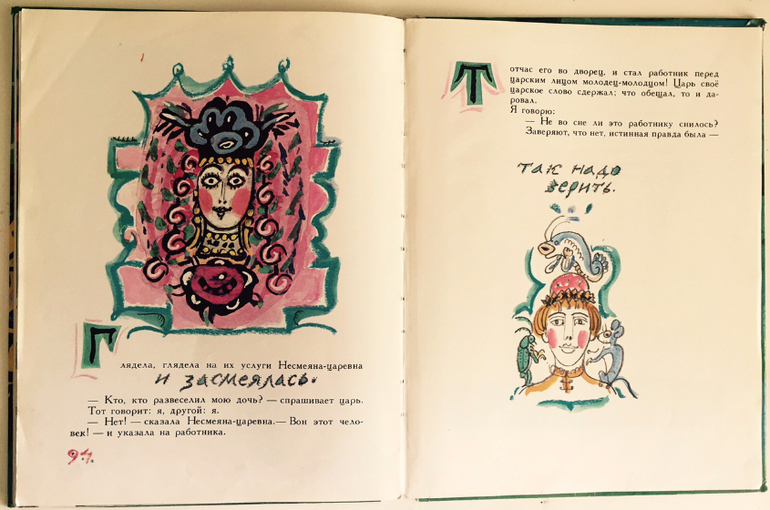 Глядела, глядела на их услуги Несмеяна-царевна
и засмеялась.
— Кто, кто развеселил мою дочь? — спрашивает царь.
Тот говорит: я, другой: я.
— Нет! — сказала Несмеяна-царевна. — Вон этот чело-
век! — и указала на работника.
94.
Тотчас его во дворец, и стал работник перед
царским лицом молодец-молодцом! Царь своё
царское слово сдержал; что обещал, то и да-
ровал.
Я говорю:
— Не во сне ли это работнику снилось?
Заверяют, что нет, истинная правда была —
так надо
верить.